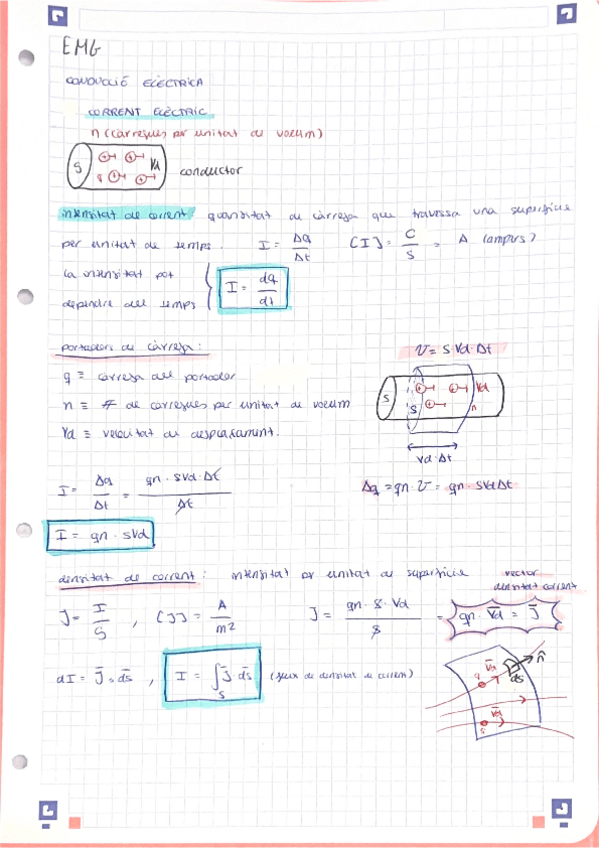 EMG
CONDUCCIÓ ELÈCTRICA
CORRENT ELÈCTRIC
n (càrregues per unitat de volum)
S q Vd conductor
intensitat de corrent: quantitat de càrrega que travessa una superfície
per unitat de temps. I = Δq/Δt [I] = C/S = A (ampers)
la intensitat pot
dependre del temps I = dq/dt
portadors de càrrega:
V = S Vd·Δt
q ≡ càrrega del portador
n ≡ # de càrregues per unitat de volum
Vd ≡ velocitat de desplaçament.
S S Vd n
Vd·Δt
I = Δq/Δt = qn·SVd·Δt/Δt
Δq = qn·V = qn·SVdΔt
I = qn·SVd
densitat de corrent: intensitat per unitat de superfície
vector
densitat corrent
J = I/S , [J] = A/m2 J = qn·S·Vd/S = qn·V̄d = J̄
dI = J̄·ds̄ , I = ∫S J̄·ds̄ (flux de densitat de corrent)
q V̄d ds̄ n̂
V̄d